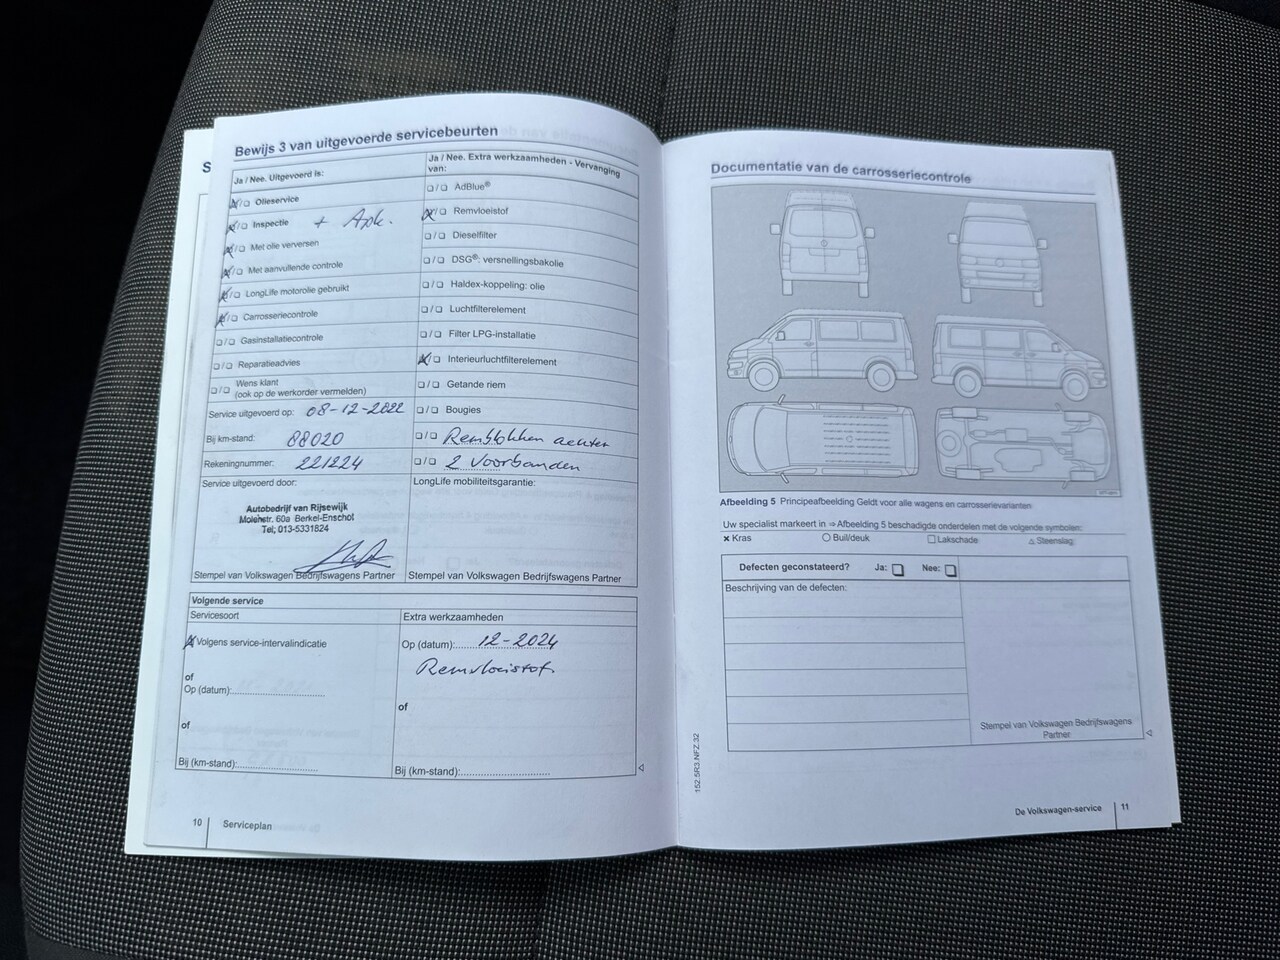 Bewijs 3 van uitgevoerde servicebeurten
Ja / Nee. Uitgevoerd is:
Olieservice
Inspectie + Apk.
Met olie verversen
Met aanvullende controle
LongLife motorolie gebruikt
Carrosseriecontrole
Gasinstallatiecontrole
Reparatieadvies
Wens klant
(ook op de werkorder vermelden)
Service uitgevoerd op: 08-12-2022
Bij km-stand: 88020
Rekeningnummer: 221224
Service uitgevoerd door:
Autobedrijf van Rijsewijk
Molenstr. 60a Berkel-Enschot
Tel; 013-5331824
Stempel van Volkswagen Bedrijfswagens Partner
Ja / Nee. Extra werkzaamheden - Vervanging
van:
AdBlue®
Remvloeistof
Dieselfilter
DSG®: versnellingsbakolie
Haldex-koppeling: olie
Luchtfilterelement
Filter LPG-installatie
Interieurluchtfilterelement
Getande riem
Bougies
Remblokken achter
2 Voorbanden
LongLife mobiliteitsgarantie:
Stempel van Volkswagen Bedrijfswagens Partner
Volgende service
Servicesoort
Volgens service-intervalindicatie
of
Op (datum):
of
Bij (km-stand):
Extra werkzaamheden
Op (datum): 12-2024
Remvloeistof.
of
Bij (km-stand):
10 Serviceplan
Documentatie van de carrosseriecontrole
Afbeelding 5 Principeafbeelding Geldt voor alle wagens en carrosserievarianten
Uw specialist markeert in ⇒ Afbeelding 5 beschadigde onderdelen met de volgende symbolen:
Kras
Buil/deuk
Lakschade
Steenslag
Defecten geconstateerd? Ja: Nee:
Beschrijving van de defecten:
Stempel van Volkswagen Bedrijfswagens
Partner
152.5R3.NFZ.32
De Volkswagen-service 11